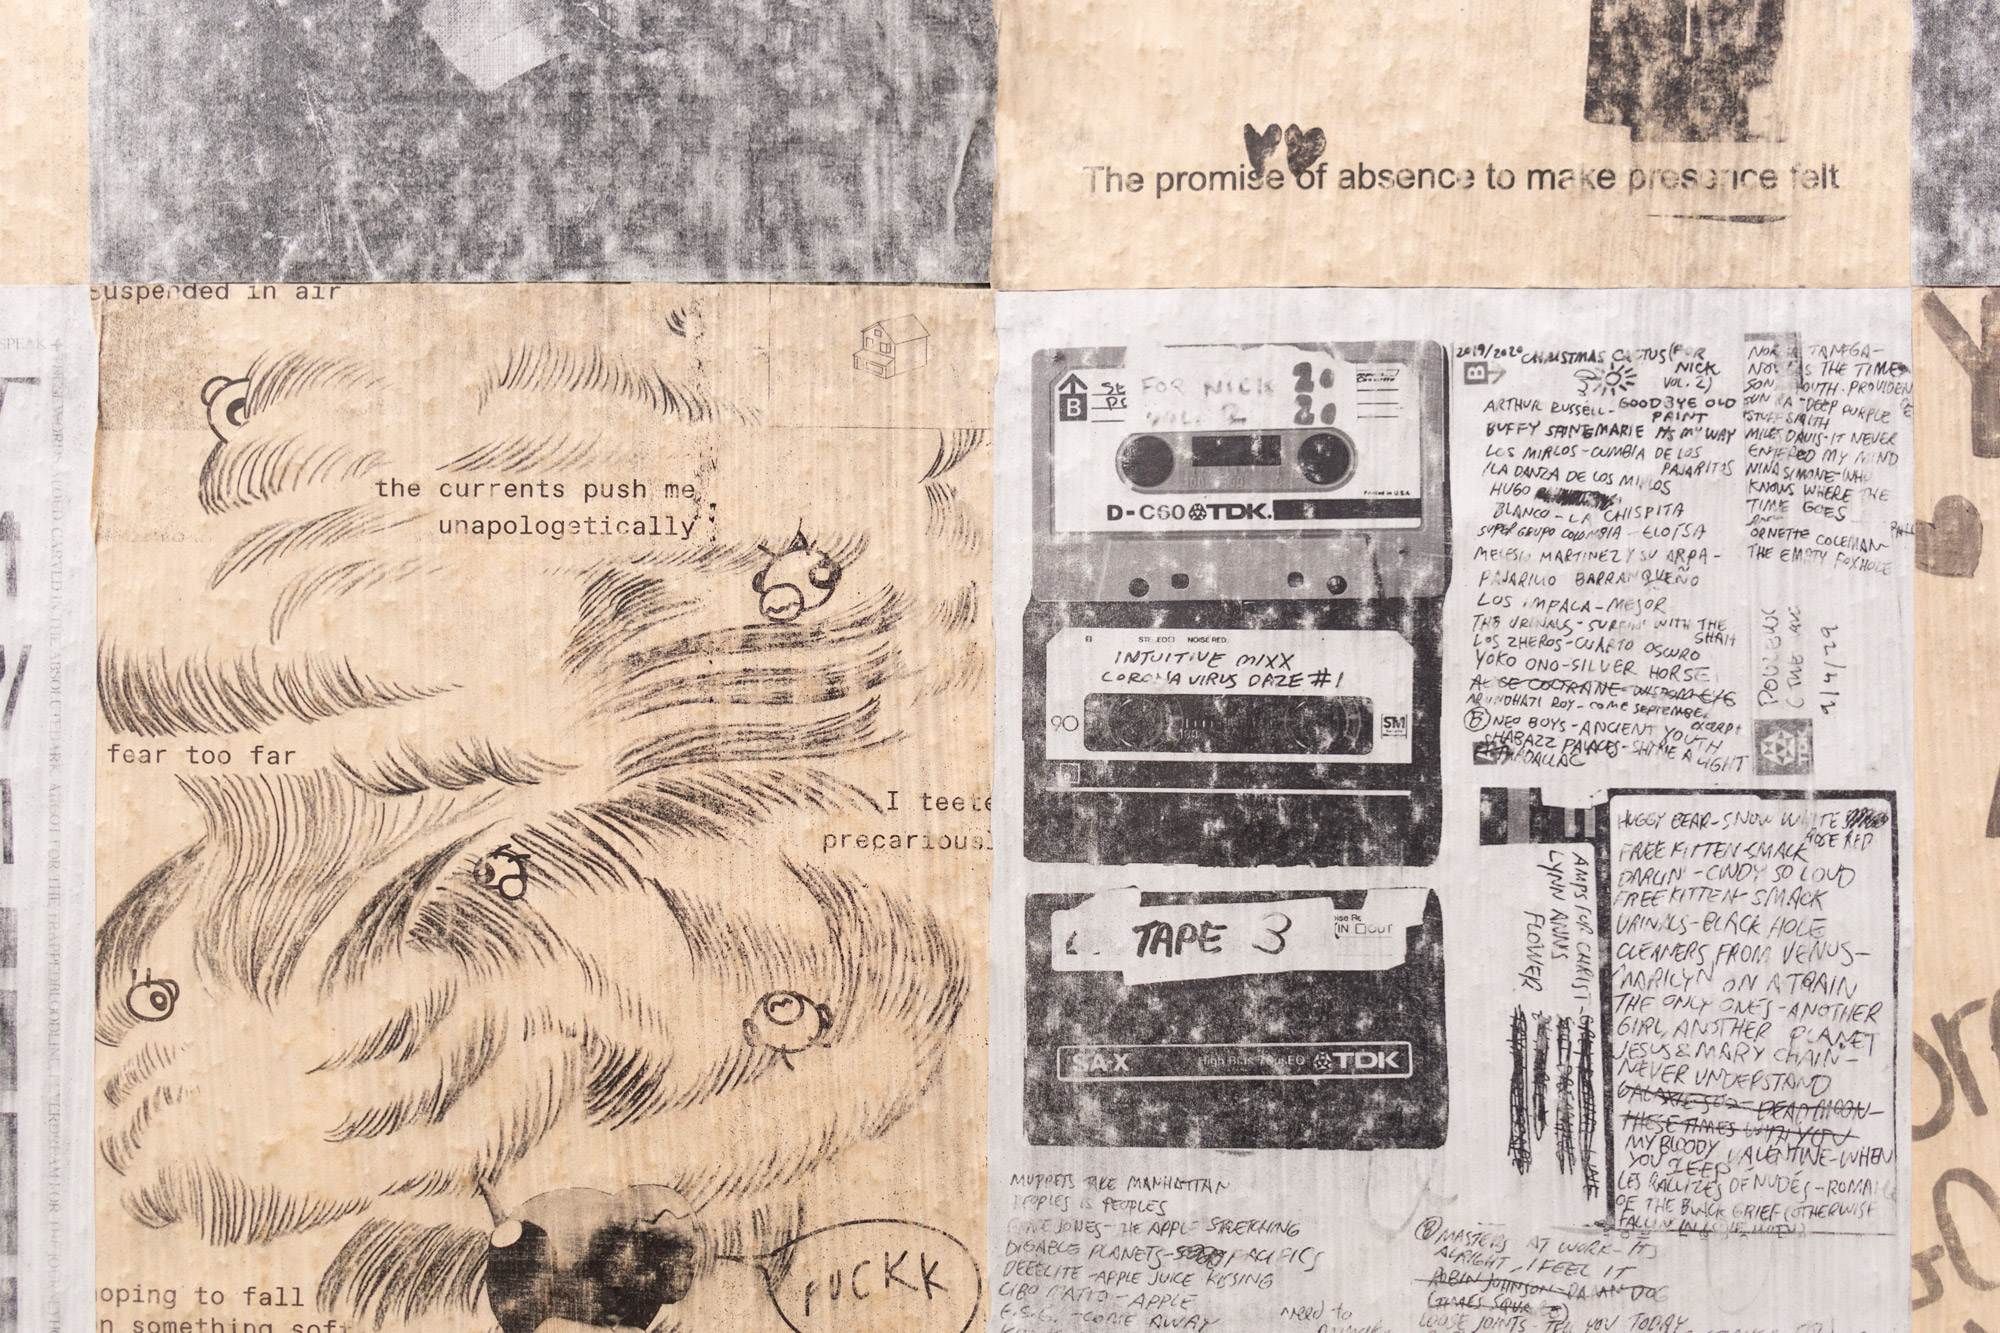 The promise of absence to make presence felt
Suspended in air
the currents push me
unapologetically
fear too far
I teete
precariousl
hoping to fall
on something soft
FUCKK
SPEAK
B
FOR NICK
VOL. 2
20
20
D-C60 TDK.
INTUITIVE MIXX
CORONA VIRUS DAZE #1
90
TAPE 3
IN OUT
SA-X
TDK
2019/2020 CHRISTMAS CACTUS (FOR
NICK
VOL. 2)
B
ARTHUR RUSSELL - GOODBYE OLD
PAINT
BUFFY SAINTE MARIE - MY WAY
LOS MIRLOS - CUMBIA DE LOS
PAJARITOS
/LA DANZA DE LOS MIRLOS
HUGO
BLANCO - LA CHISPITA
SUPER GRUPO COLOMBIA - ELOÍSA
MELESIO MARTINEZ Y SU ARPA -
PAJARILLO BARRANQUEÑO
LOS IMPALA - MEJOR
THE URINALS - SURFIN' WITH THE
SHAH
LOS ZHEROS - CUARTO OSCURO
YOKO ONO - SILVER HORSE
ALICE COLTRANE - WISDOM EYE
ARUNDHATI ROY - COME SEPTEMBER
excerpt
B NEO BOYS - ANCIENT YOUTH
SHABAZZ PALACES - SHINE A LIGHT
NORMA TANEGA -
NOW IS THE TIME
SONIC YOUTH - PROVIDENCE
SUN RA - DEEP PURPLE
STUFF SMITH
MILES DAVIS - IT NEVER
ENTERED MY MIND
NINA SIMONE - WHO
KNOWS WHERE THE
TIME GOES
ORNETTE COLEMAN -
THE EMPTY FOXHOLE
HUGGY BEAR - SNOW WHITE
ROSE RED
FREE KITTEN - SMACK
DARLIN' - CINDY SO LOUD
FREE KITTEN - SMACK
URINALS - BLACK HOLE
CLEANERS FROM VENUS -
MARILYN ON A TRAIN
THE ONLY ONES - ANOTHER
GIRL, ANOTHER PLANET
JESUS & MARY CHAIN -
NEVER UNDERSTAND
GALAXIE 500 - DEAD MOON -
THESE TIMES WITH YOU
MY BLOODY VALENTINE - WHEN
YOU SLEEP
LES RALLIZES DENUDÉS - ROMAN
OF THE BLACK GRIEF (OTHERWISE
FALLIN IN LOVE WITH)
AMPS FOR CHRIST -
LYNN ANNS
FLOWER
MUPPETS TAKE MANHATTAN
PEOPLES IS PEOPLES
GRACE JONES - THE APPLE STRETCHING
DIGABLE PLANETS - PACIFICS
DEEELITE - APPLE JUICE KISSING
CIBO MATTO - APPLE
E.S.G. - COME AWAY
need to
B MASTERS AT WORK - IT'S
ALRIGHT, I FEEL IT
ROBIN JOHNSON - DAMN DOG
(TIMES SQUARE)
LOOSE JOINTS - TELL YOU TODAY